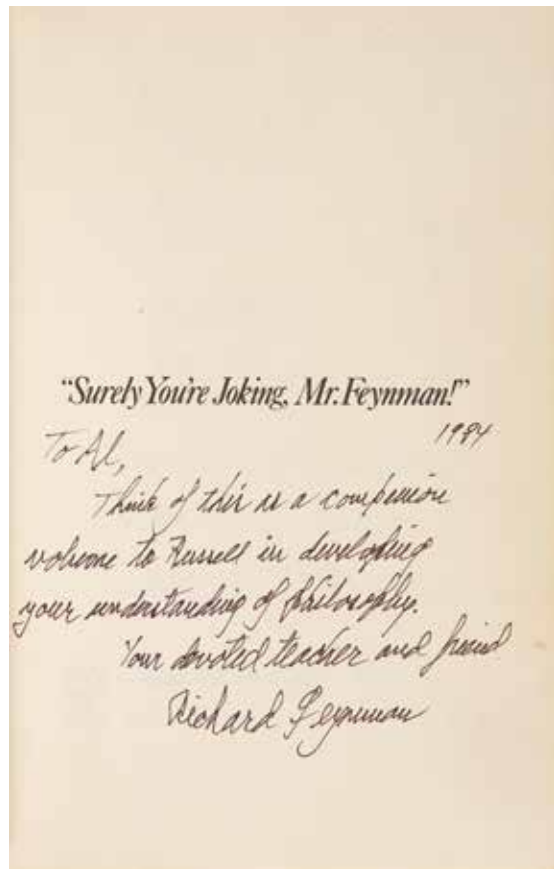 "Surely You're Joking, Mr. Feynman!"
1984
To Al,
Think of this as a companion
volume to Russell in developing
your understanding of philosophy.
Your devoted teacher and friend
Richard Feynman